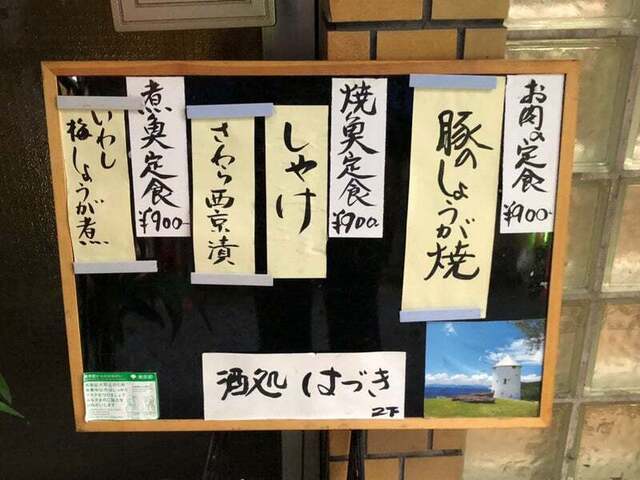 お肉の定食
¥900-
豚のしょうが焼
焼魚定食
¥900
しゃけ
さわら西京漬
煮魚定食
¥900-
いわし
梅しょうが煮
酒処 はづき
2F